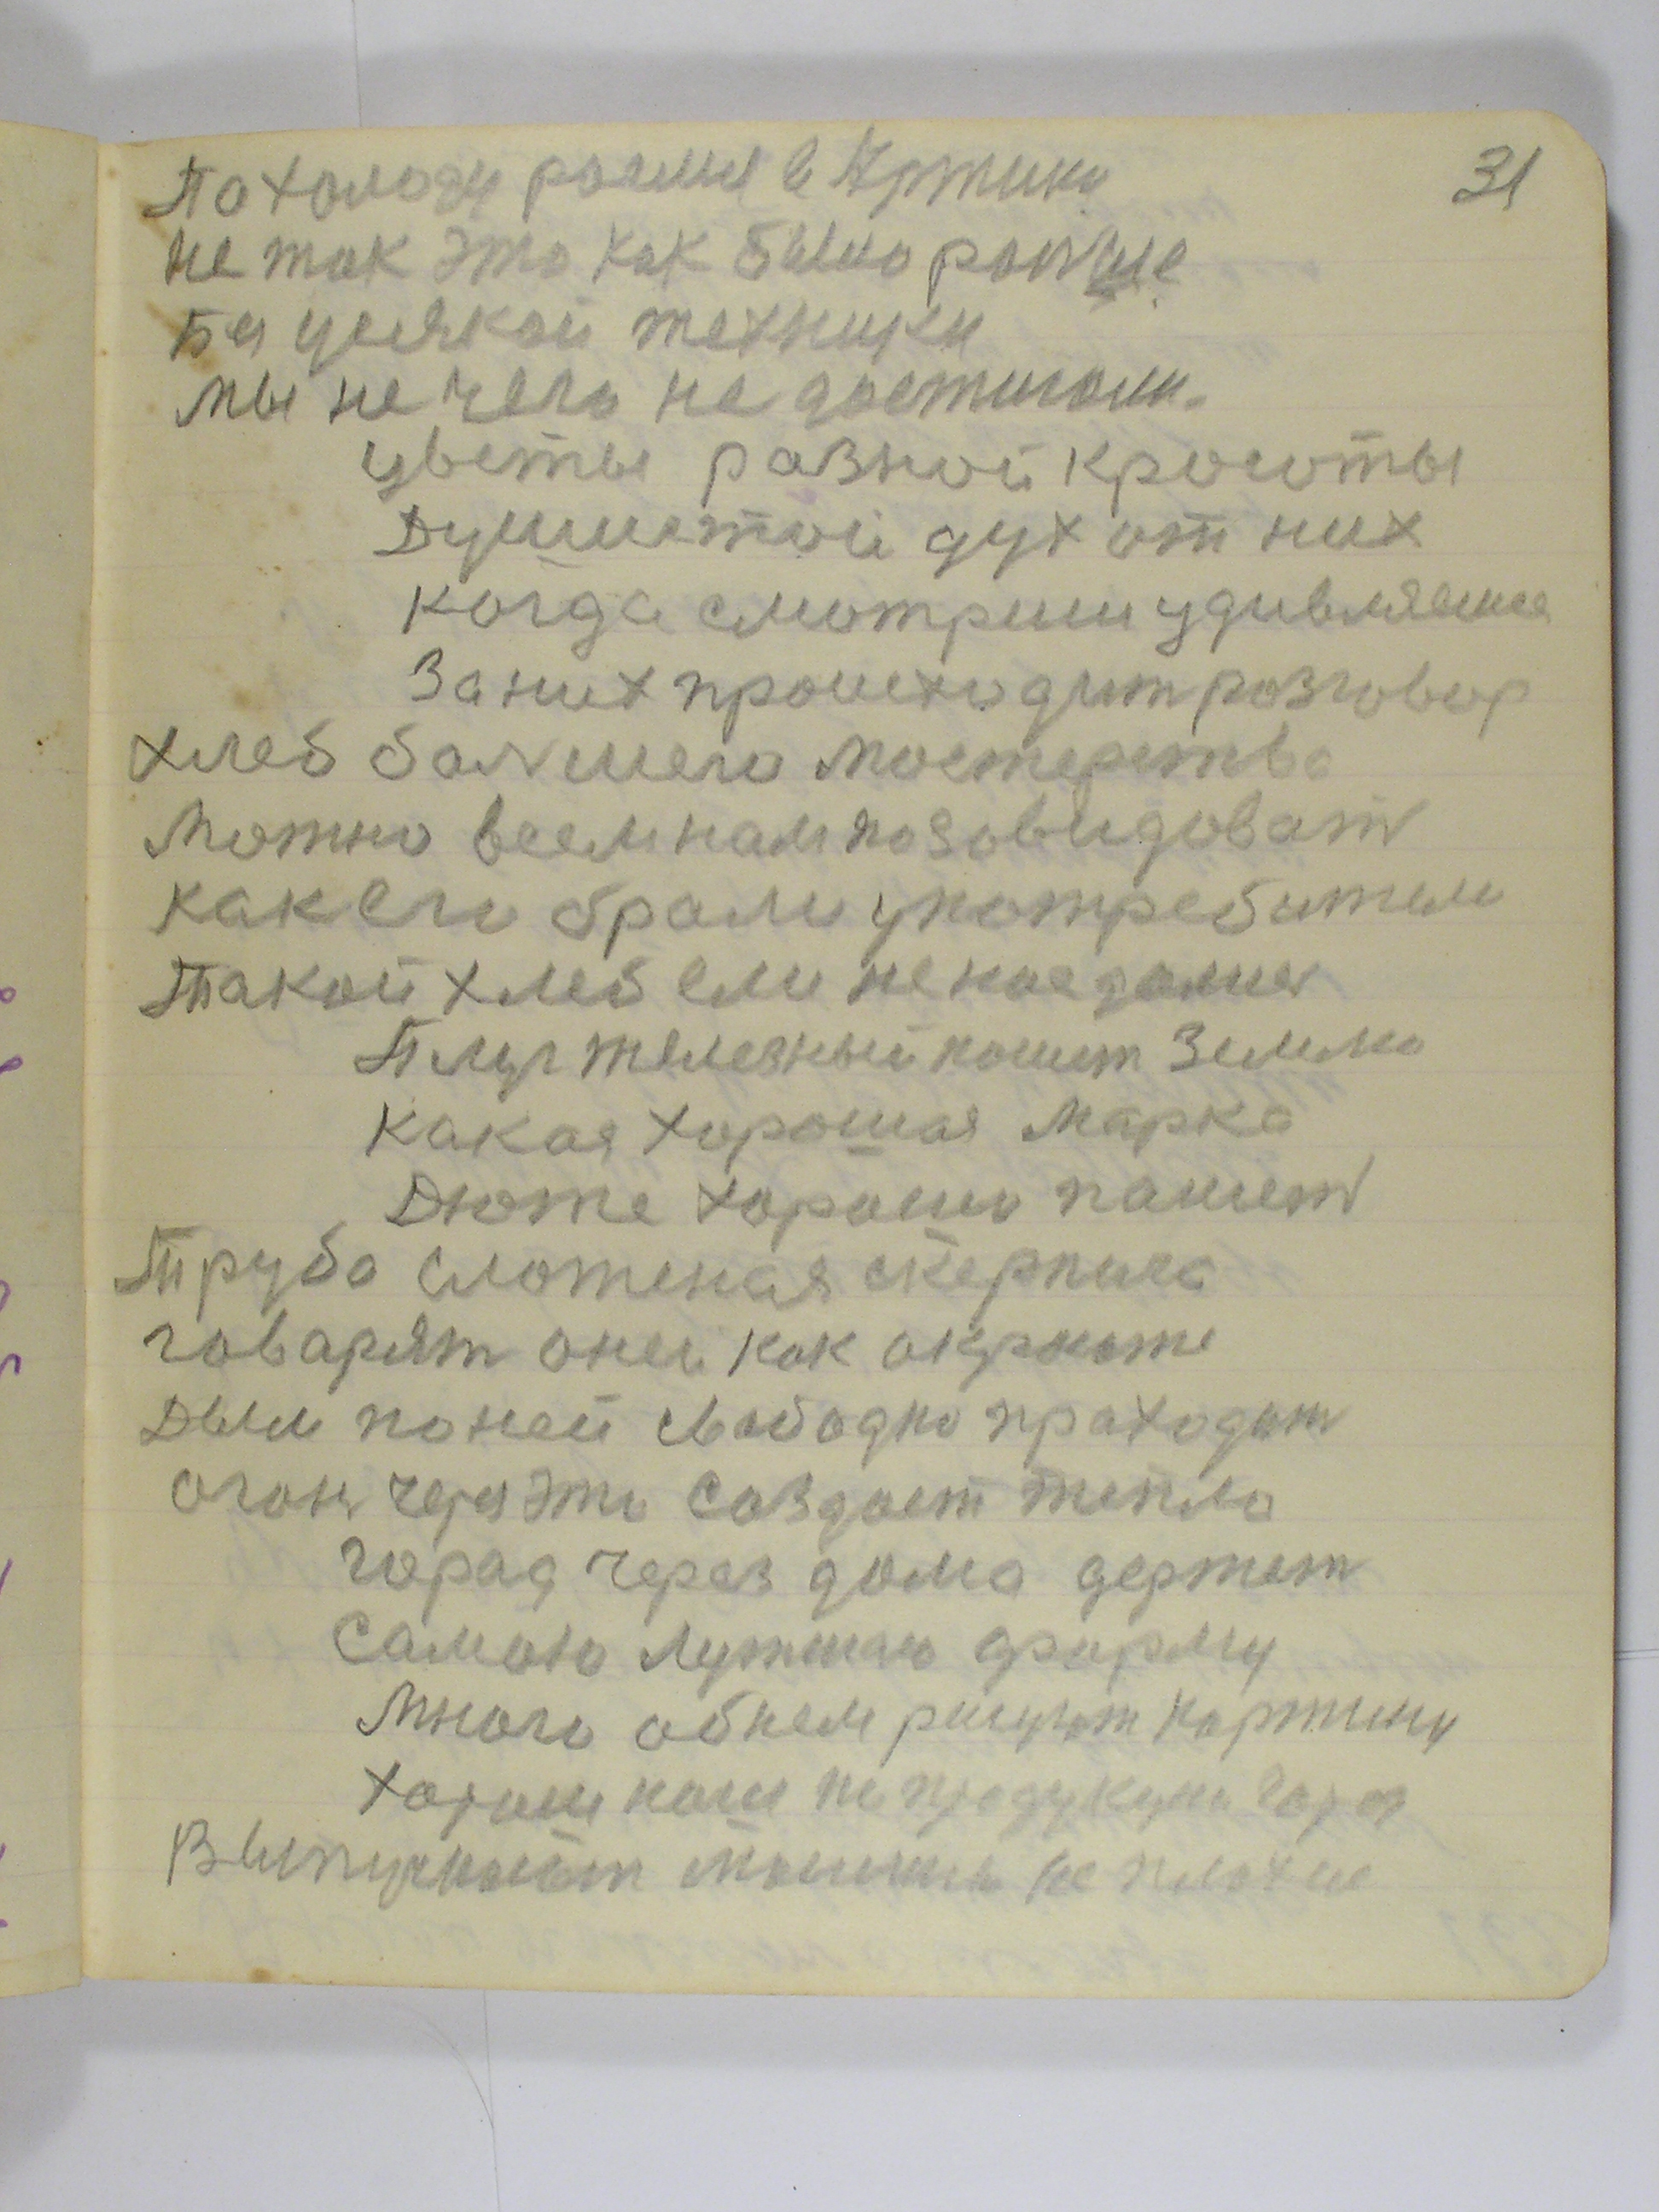 31
Па холоду
не так это как было раньше
Без усякой техники
мы не чего не достигали.
цветы разной красоты
Душистой дух от них
когда смотриш удивляешся
За них происходит розговор
хлеб большего мастерства
Можно всем нам позавидовать
как его брали употребители
Такой хлеб ели не наедались
Плуг железный пашет землю
какая хорошая марка
Дюже харашо пашет
Труба сложеная скерпича
говарят оней как
Дым по ней свободно праходит
огонь через это создает тепло
горад через дома держет
Самою лутшаю форму
Много обнем рисуют картину
не плохие